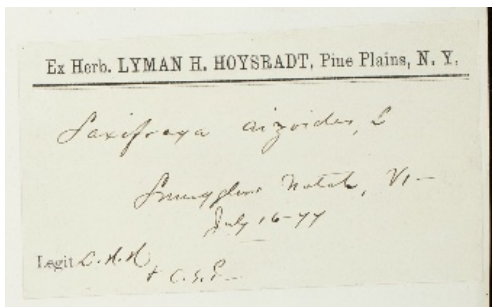 Ex Herb. LYMAN H. HOYSRADT, Pine Plains, N. Y.
Saxifraga aizoides, L
Smugglers Notch, Vt—
July 16-77
Legit L. H. H.
+ C. G. P—